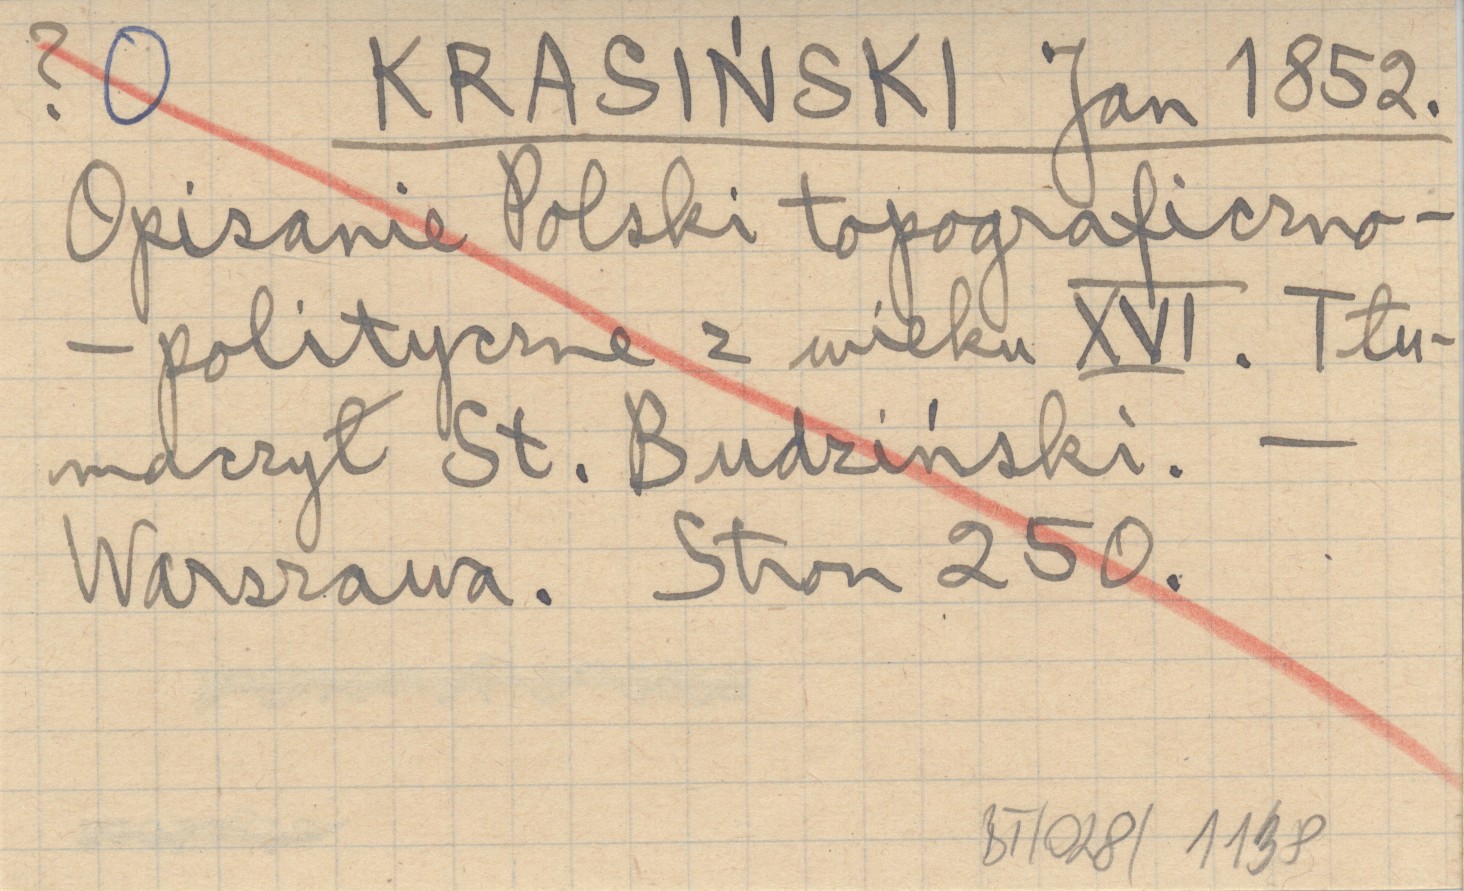 ? O KRASIŃSKI Jan 1852.
Opisanie Polski topograficzno-
-polityczne z wieku XVI. Tłu-
maczył St. Budziński. —
Warszawa. Stron 250.